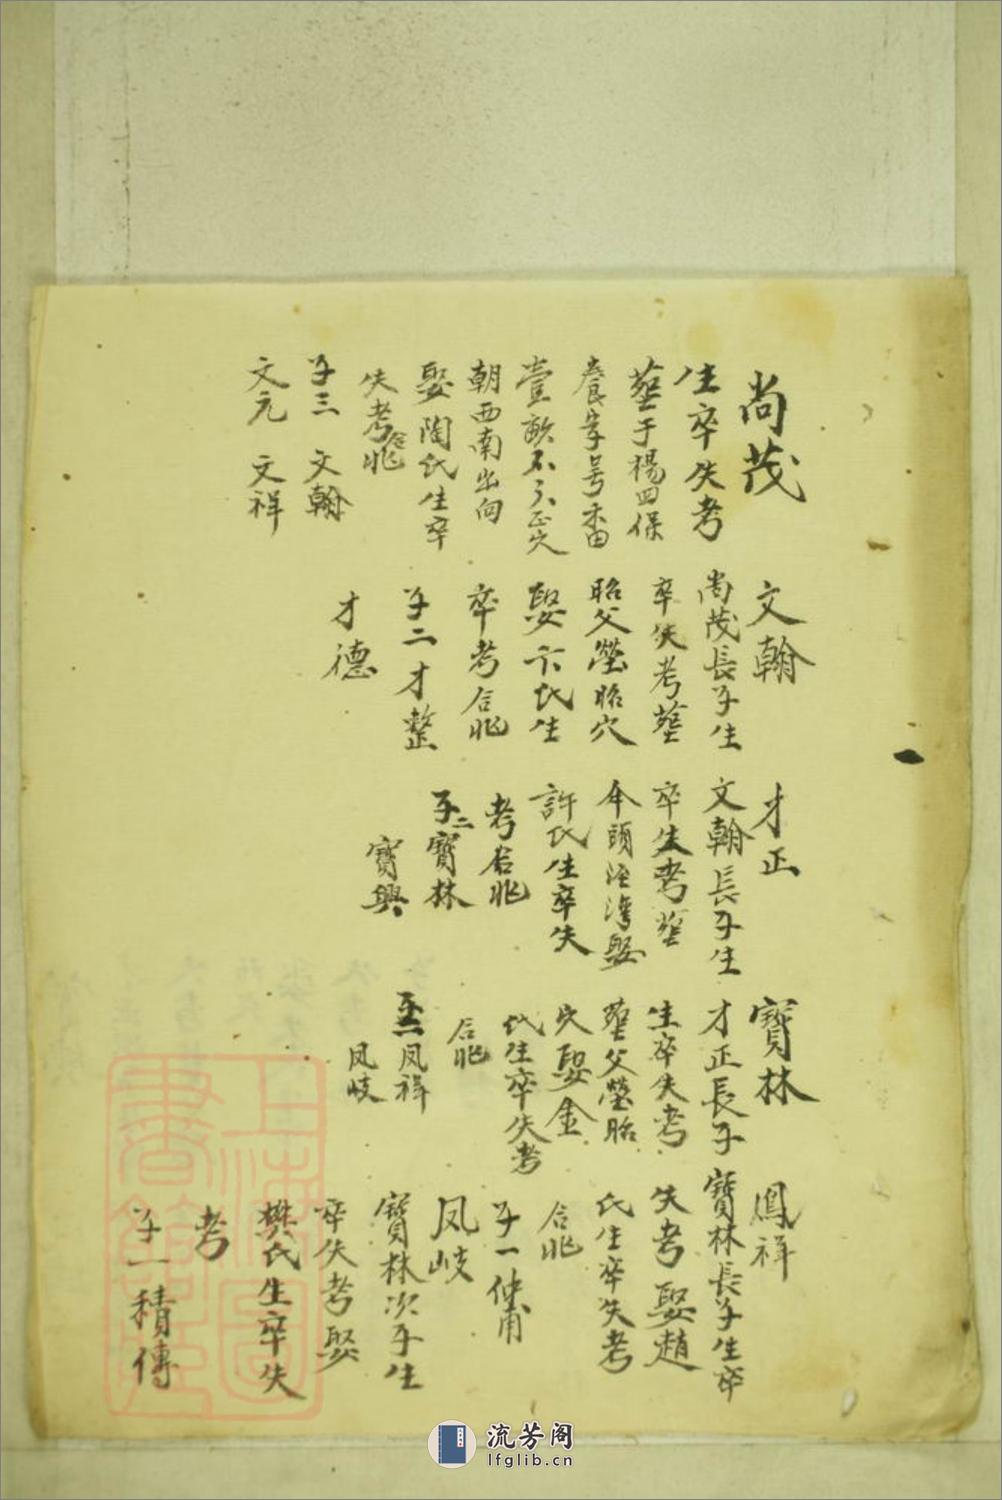 尚茂
生卒失考
塟于楊四保
養字号香田
壹畝不只正穴
朝西南出向
娶陶氏生卒
失考合兆
子三 文翰
文元 文祥
文翰
尚茂長子生
卒失考塟
昭父塋昭穴
娶卞氏生
卒考合兆
子二 才整
才德
才正
文翰長子生
卒生考塟
伞頭溼湾娶
許氏生卒失
考合兆
子二寶林
寶興
寶林
才正長子
生卒失考
塟父塋昭
穴娶金
氏生卒失考
合兆
子二凤祥
凤岐
鳳祥
寶林長子生卒
失考娶趙
氏生卒失考
合兆
子一
凤岐
寶林次子生
卒失考娶
樊氏生卒失
考
子一積傳
上海圖書館藏
流芳阁
lfglib.cn